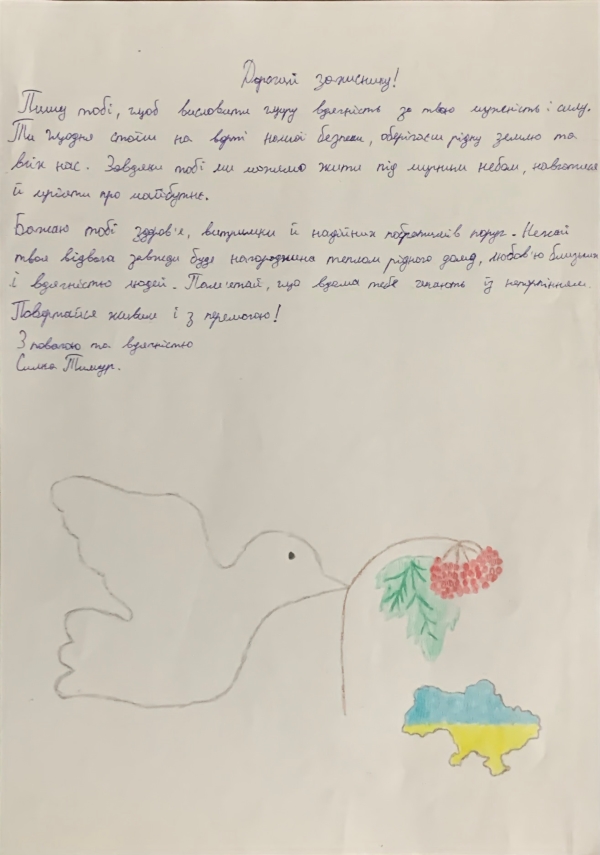 Дорогий захиснику!
Пишу тобі, щоб висловити щиру вдячність за твою мужність і силу.
Ти щодня стоїш на варті нашої безпеки, оберігаєш рідну землю та
всіх нас. Завдяки тобі ми можемо жити під мирним небом, навчатися
й мріяти про майбутнє.
Бажаю тобі здоров'я, витримки й надійних побратимів поруч. Нехай
твоя відвага завжди буде нагороджена теплом рідного дому, любов'ю близьких
і вдячністю людей. Пам'ятай, що вдома тебе чекають із нетерпінням.
Повертайся живим і з перемогою!
З повагою та вдячністю
Тимур.